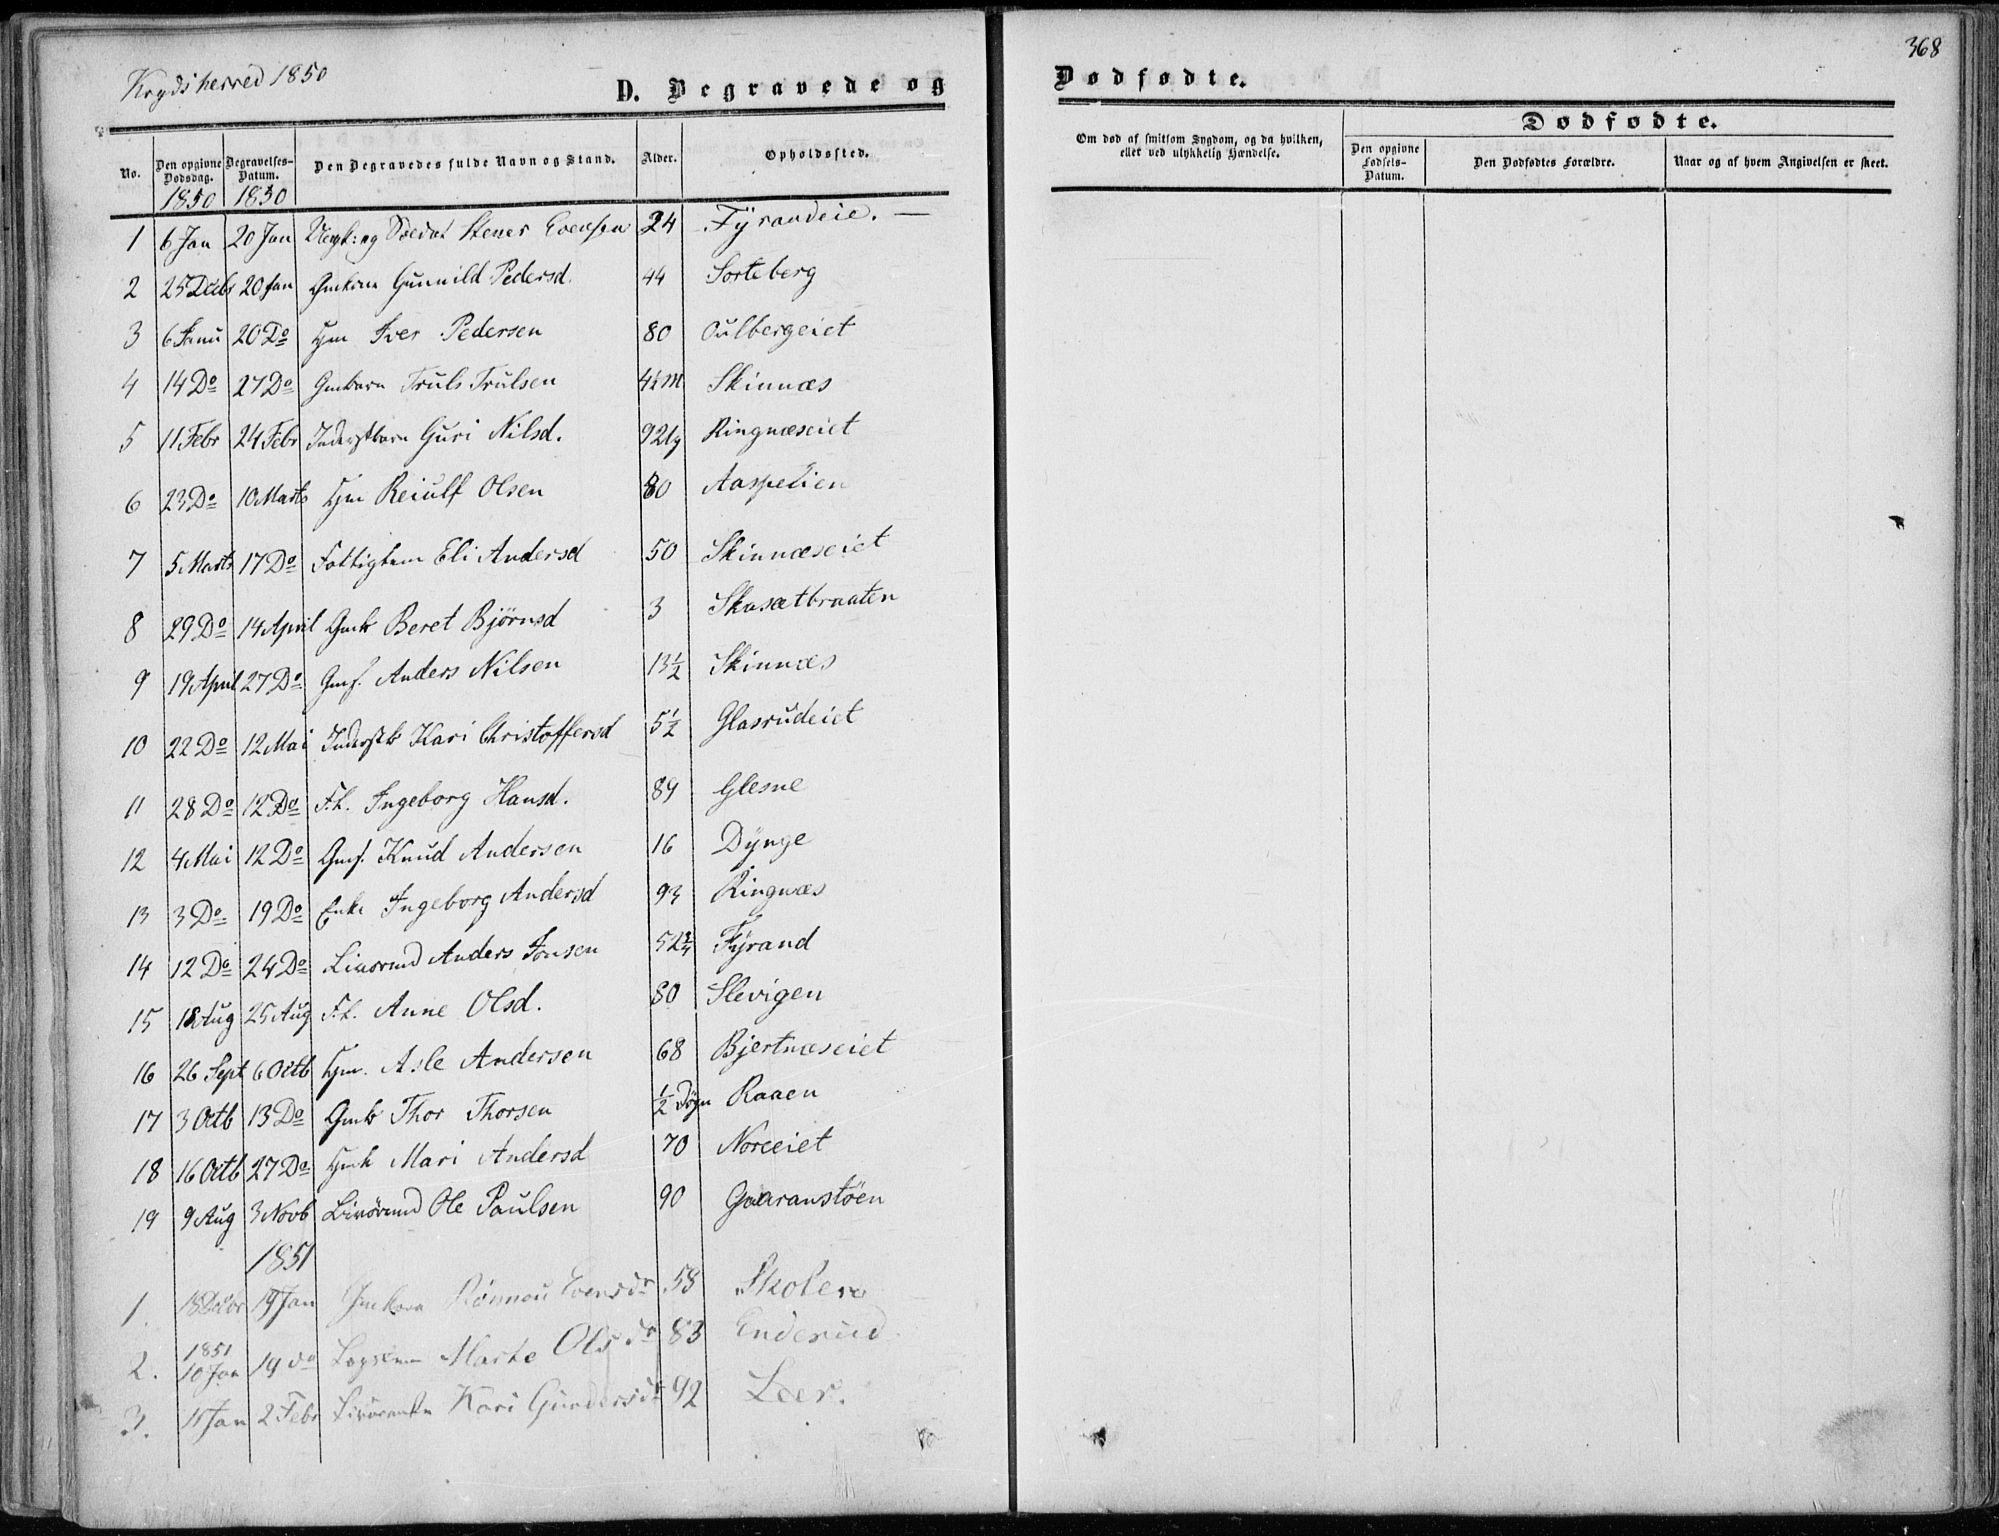 368
Krydsherred 1850
D. Begravede og Dødfødte.
No. | Den opgivne Dødsdag. | Begravelses-Datum. | Den Begravedes fulde Navn og Stand. | Alder. | Opholdssted. | Om død af smitsom Sygdom, og da hvilken, eller ved ulykkelig Hændelse. | Dødfødte. | Den opgivne Fødsels-Datum. | Den Dødfødtes Forældre. | Naar og af hvem Angivelsen er skeet.
1850 1850
1 6 Jan 20 Jan Ungk: og Soldat Stener Evensen 24 Fyrandeie. —
2 25 Decbr 20 Jan Gmkone Gunnild Pedersd. 44 Sorteberg
3 6 Janu 20 Do Hm Iver Pedersen 80 Oulbergeiet
4 14 Do 27 Do Gmbarn Truls Trulsen 4½ M Skinnæs
5 11 Febr 24 Febr Inderstbarn Guri Nilsd. Ringnæseiet
6 23 Do 10 Marts Hm Reiulf Olsen 80 Aaspelien
7 5 Marts 17 Do Fattiglem Eli Andersd 50 Skinnæseiet
8 29 Do 14 April Gmb Beret Bjørnsd 3 Skasætbraaten
9 19 April 27 Do Gmf. Anders Nilsen 13½ Skinnæs
10 22 Do 12 Mai Inderstb Kari Christoffersd 5½ Glasrudeiet
11 28 Do 12 Do F.l. Ingeborg Hansd. 89 Glesne
12 4 Mai 12 Do Gmf. Knud Andersen 16 Dynge
13 3 Do 19 Do Enke Ingeborg Andersd 93 Ringnæs
14 12 Do 24 Do Livørmd Anders Jonsen 52¾ Fyrand
15 18 Aug 25 Aug F.l. Anne Olsd. 80 Slevigen
16 26 Sept 6 Octb Hm. Asle Andersen 68 Bjertnæseiet
17 3 Octb 13 Do Gmb Thor Thorsen ½ Døgn Raaen
18 16 Octb 27 Do Hmk Mari Andersd 70 Noreeiet
19 9 Aug 3 Novb Livørmd Ole Paulsen 90 Gaaranstøen
1851
1. 18 Decbr 19 Jan Gmkone Rönnou Evensdr 58 Skolen
1851
2. 10 Jan 19 do Marte Olsdr 83 Enderud
3. 15 Jan 2 Febr Livørenke Kari Gundersdr 92 Leer.